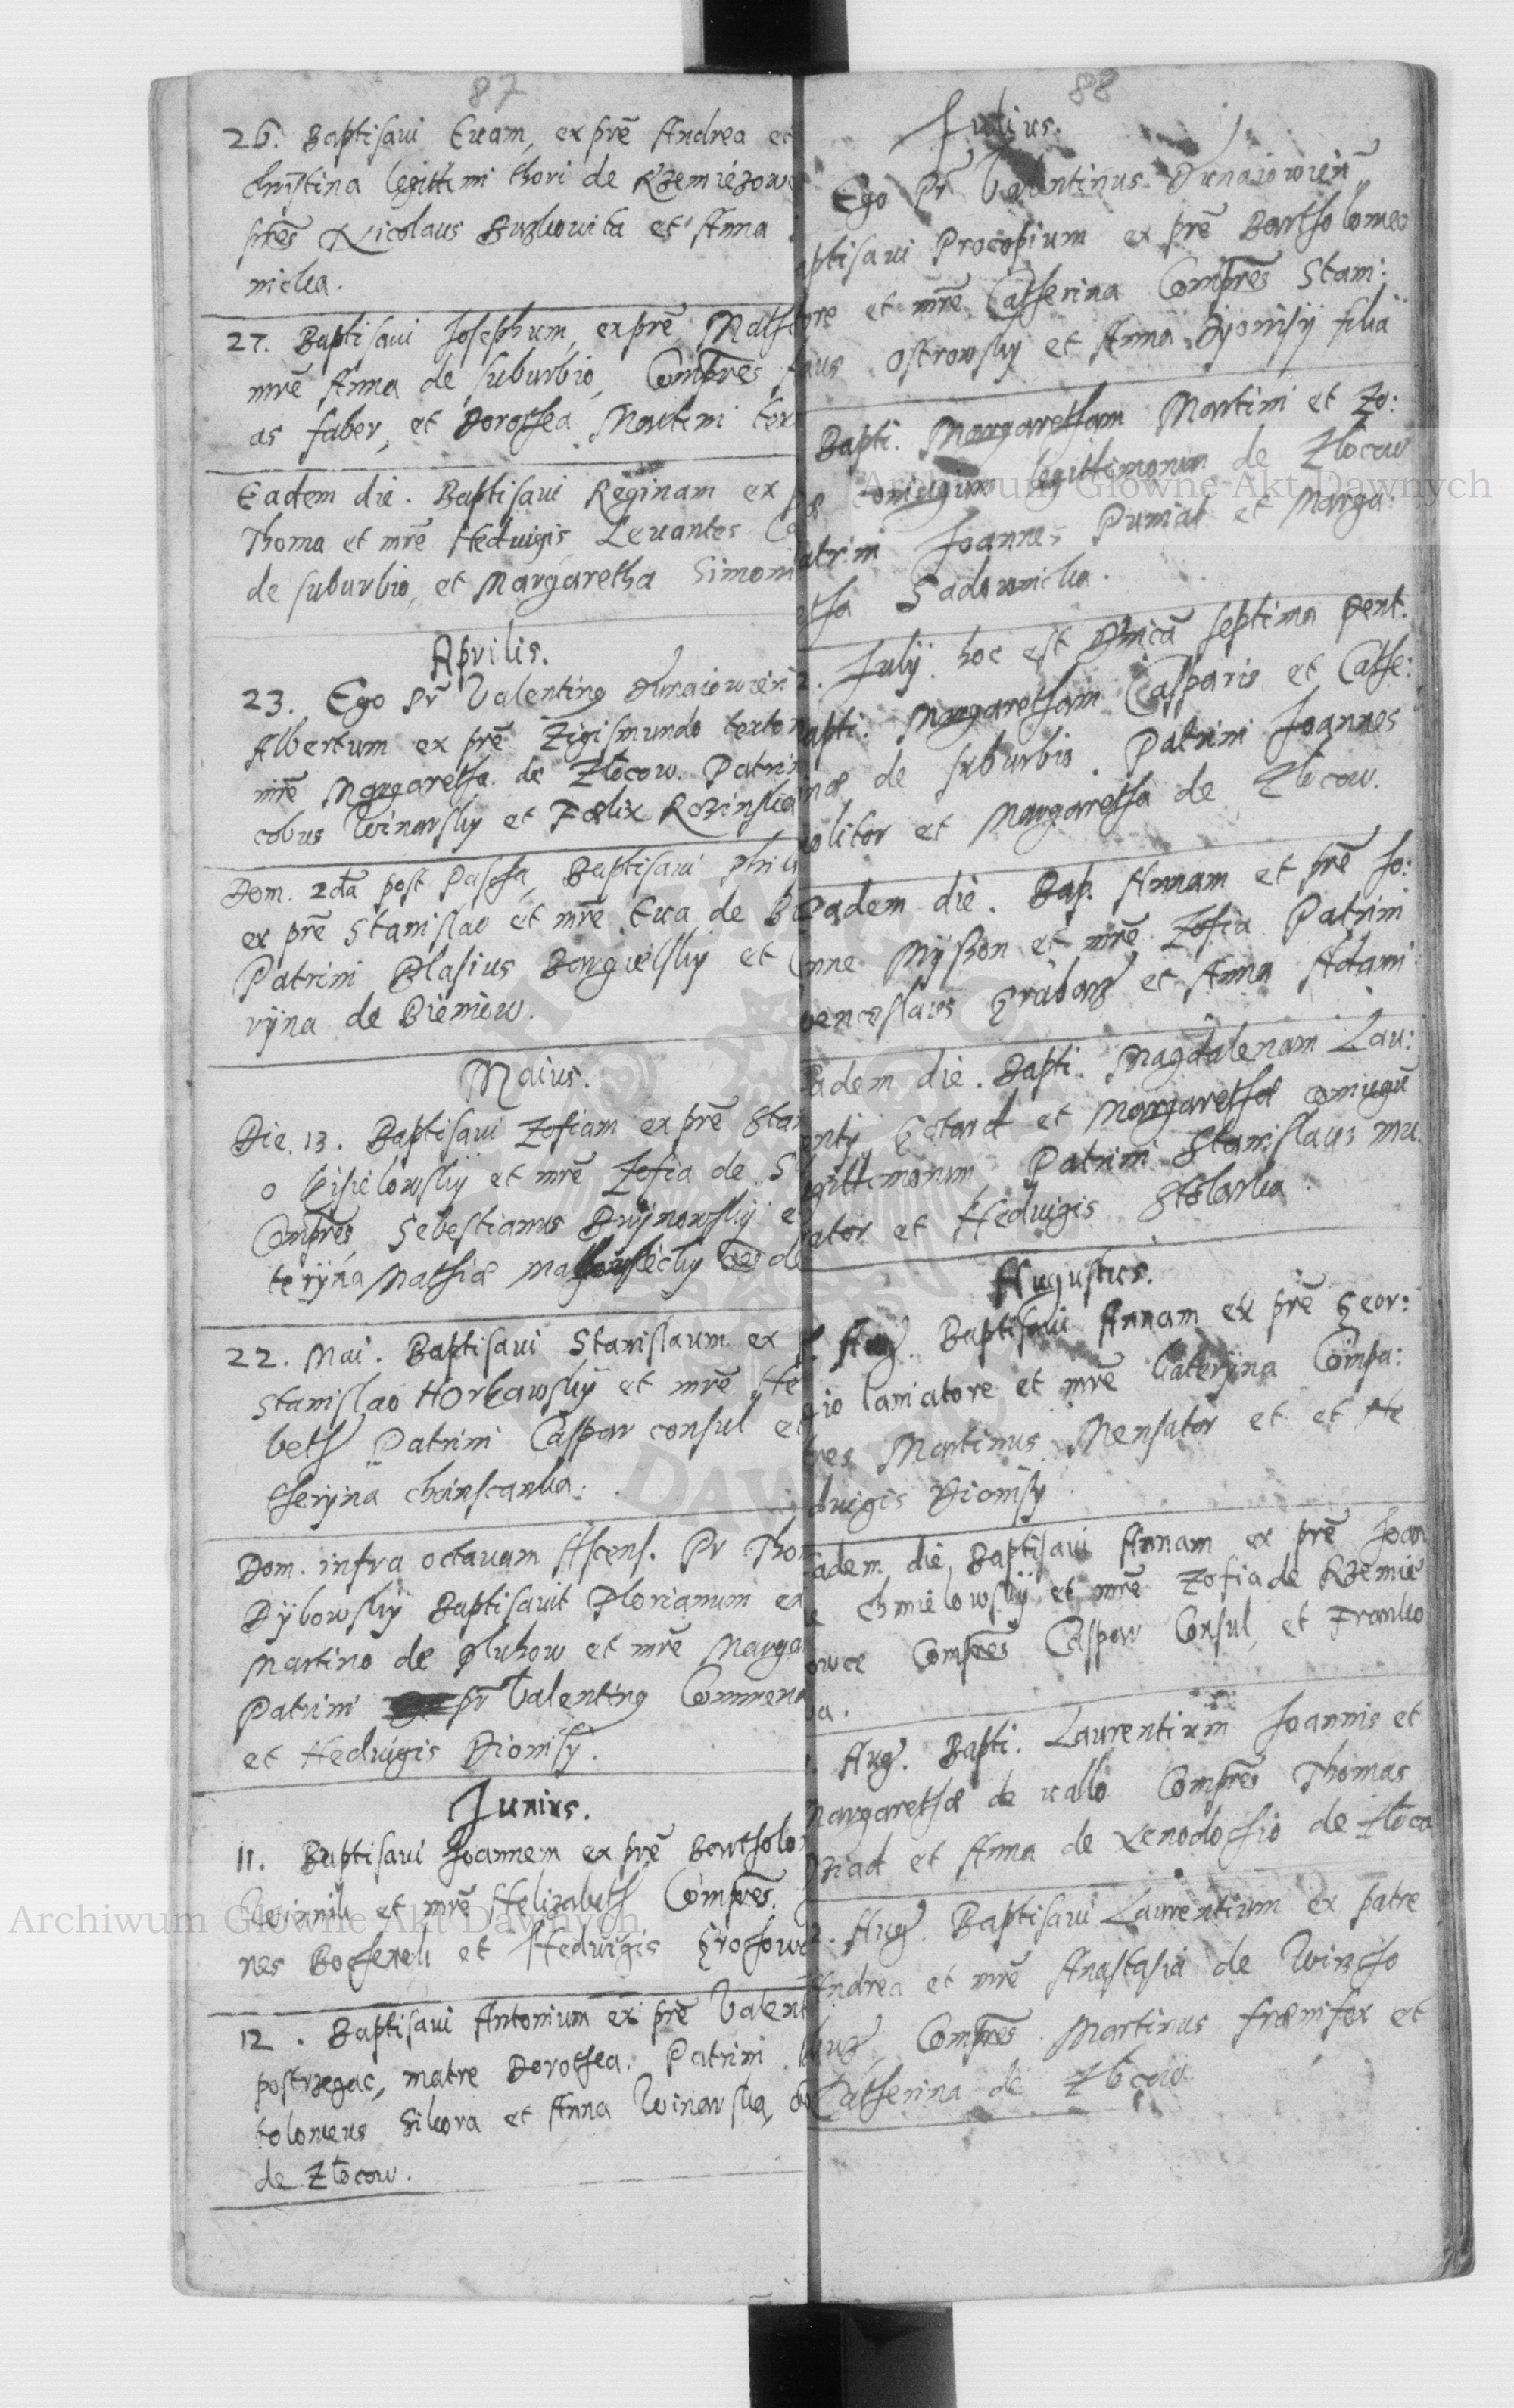 87
26. Baptisaui Euam, ex prē Andrea et
Christina legittimi thori de Rzemiezow
prēs Nicolaus et Anna
nicka.
27. Baptisaui Josephum, ex prē Math
mrē Anna de suburbio, Comprēs
as faber, et Dorothea Martini tex
Eadem die. Baptisaui Reginam ex
Thoma et mrē Heduigis, Leuantes
de suburbio, et Margaretha Simoni
Aprilis.
23. Ego Pr Valenting Dunaiowien
Albertum ex prē Zigismundo texto
mrē Margaretha de Złocow. Patrin
cobus Winarsky et Fælix Rozinska
Dom. 2da post Pascha, Baptisaui Phili
ex prē Stanislao et mrē Eua de
Patrini Blasius et
ryna de Bieniew.
Maius.
Die. 13. Baptisaui Zofiam ex prē Stan
o Kisielowsky et mrē Zofia de
Comprēs, Sebestianus et
teryna Mathiæ de
22. Mai. Baptisaui Stanislaum ex
Stanislao et mrē He
beth Patrini Caspar consul et
theryna
Dom. infra octauam Ascens. Pr Thom
Dybowsky Baptisauit Florianum ex
Martino de Pluhow et mrē Marga
Patrini pr Valenting Commen
et Heduigis Dionisy.
Junius.
11. Baptisaui Joannem ex prē Bartholo
et mrē Helizabeth Comprēs.
nes et Heduigis
12. Baptisaui Antonium ex prē Valent
postrzegac, matre Dorothea. Patrini
tolomeus Sikora et Anna Winarska,
de Złocow.
88
Julius.
Ego Pr Valentinus Dunaiowien
ptisaui Procopium ex prē Bartholomeo
et mrē Catherina Comprēs Stani:
laus Ostrowsky et Anna Dyonisij filia
Bapti. Margaretham Martini et Zo:
coniugum legittimorum de Złocow
atrini Joannes Pumiat et Marga:
tha Sadownicka.
July. hoc est Dnica septima Pent.
apti. Margaretham Casparis et Cathe:
inæ de suburbio. Patrini Joannes
olitor et Margaretha de Złocow.
Eadem die. Bap. Annam et prē Jo:
nne et mrē Zofia Patrini
uenceslaus et Anna Adami
adem die. Bapti. Magdalenam Lau:
renty et Margarethæ coniugū
gittimorum, Patrini Stanislaus mu
rator et Heduigis Stolarka.
Augustus.
Aug. Baptisaui Annam ex prē Geor:
gio laniatore et mrē Cateryna Compa:
tres Martinus Mensator et et He
duigis Dionisy.
adem die Baptisaui Annam ex prē Joan
e Chmielowsky et mrē Zofia de Rzemie
owce Comprēs Caspar Consul, et Franko
a.
Aug. Bapti. Laurentium Joannis et
Margarethæ de uallo Comprēs Thomas
et Anna de Xenodochio de Złoco
Aug. Baptisaui Laurentium ex patre
Andrea et mrē Anastasia de Wirzcho
buz, Comprēs. Martinus frænifex et
Catherina de Złocow.
Archiwum Główne Akt Dawnych
Archiwum Główne Akt Dawnych